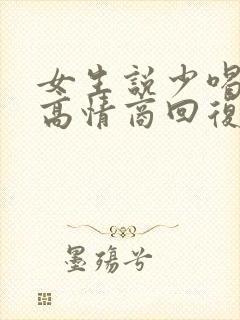 女生説少喝
高情商回復
墨殤兮